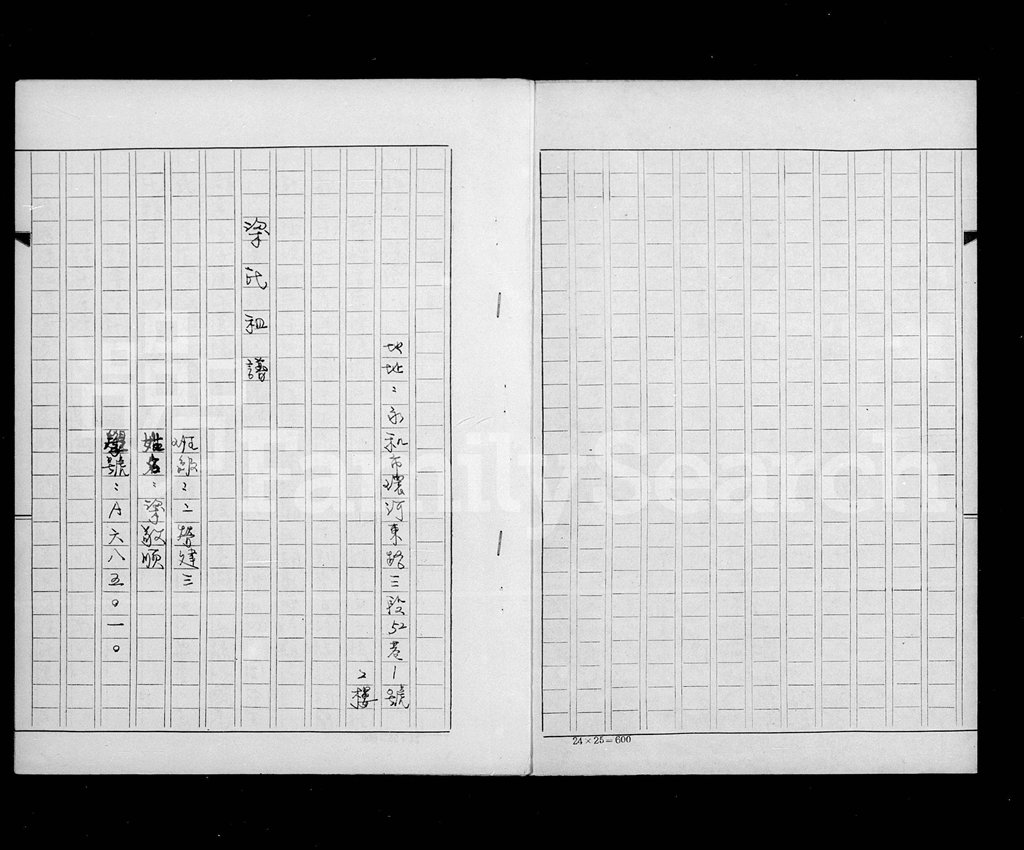 地址：永和市環河東路三段52巷1號
2樓
梁氏祖譜
班級：二營建三
姓名：梁敬順
學號：A六八五〇一〇
24×25=600
FamilySearch